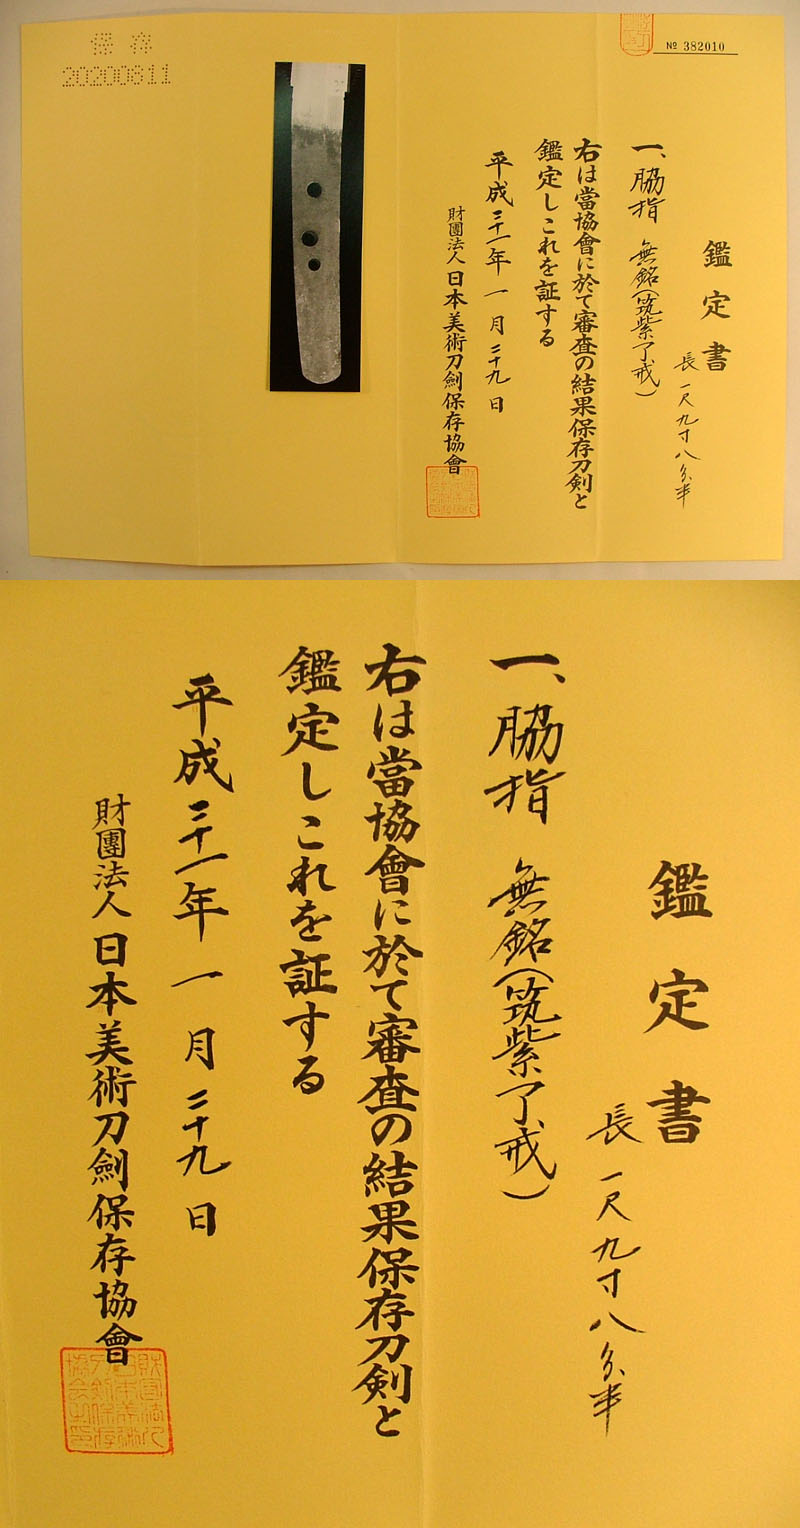 保存
20200611
№ 382010
鑑定書
長一尺九寸八分半
一、脇指 無銘(筑紫了戒)
右は當協會に於て審査の結果保存刀剣と
鑑定しこれを証する
平成三十一年一月二十九日
財團法人日本美術刀劍保存協會
鑑定書
長一尺九寸八分半
一、脇指 無銘(筑紫了戒)
右は當協會に於て審査の結果保存刀剣と
鑑定しこれを証する
平成三十一年一月二十九日
財團法人日本美術刀劍保存協會